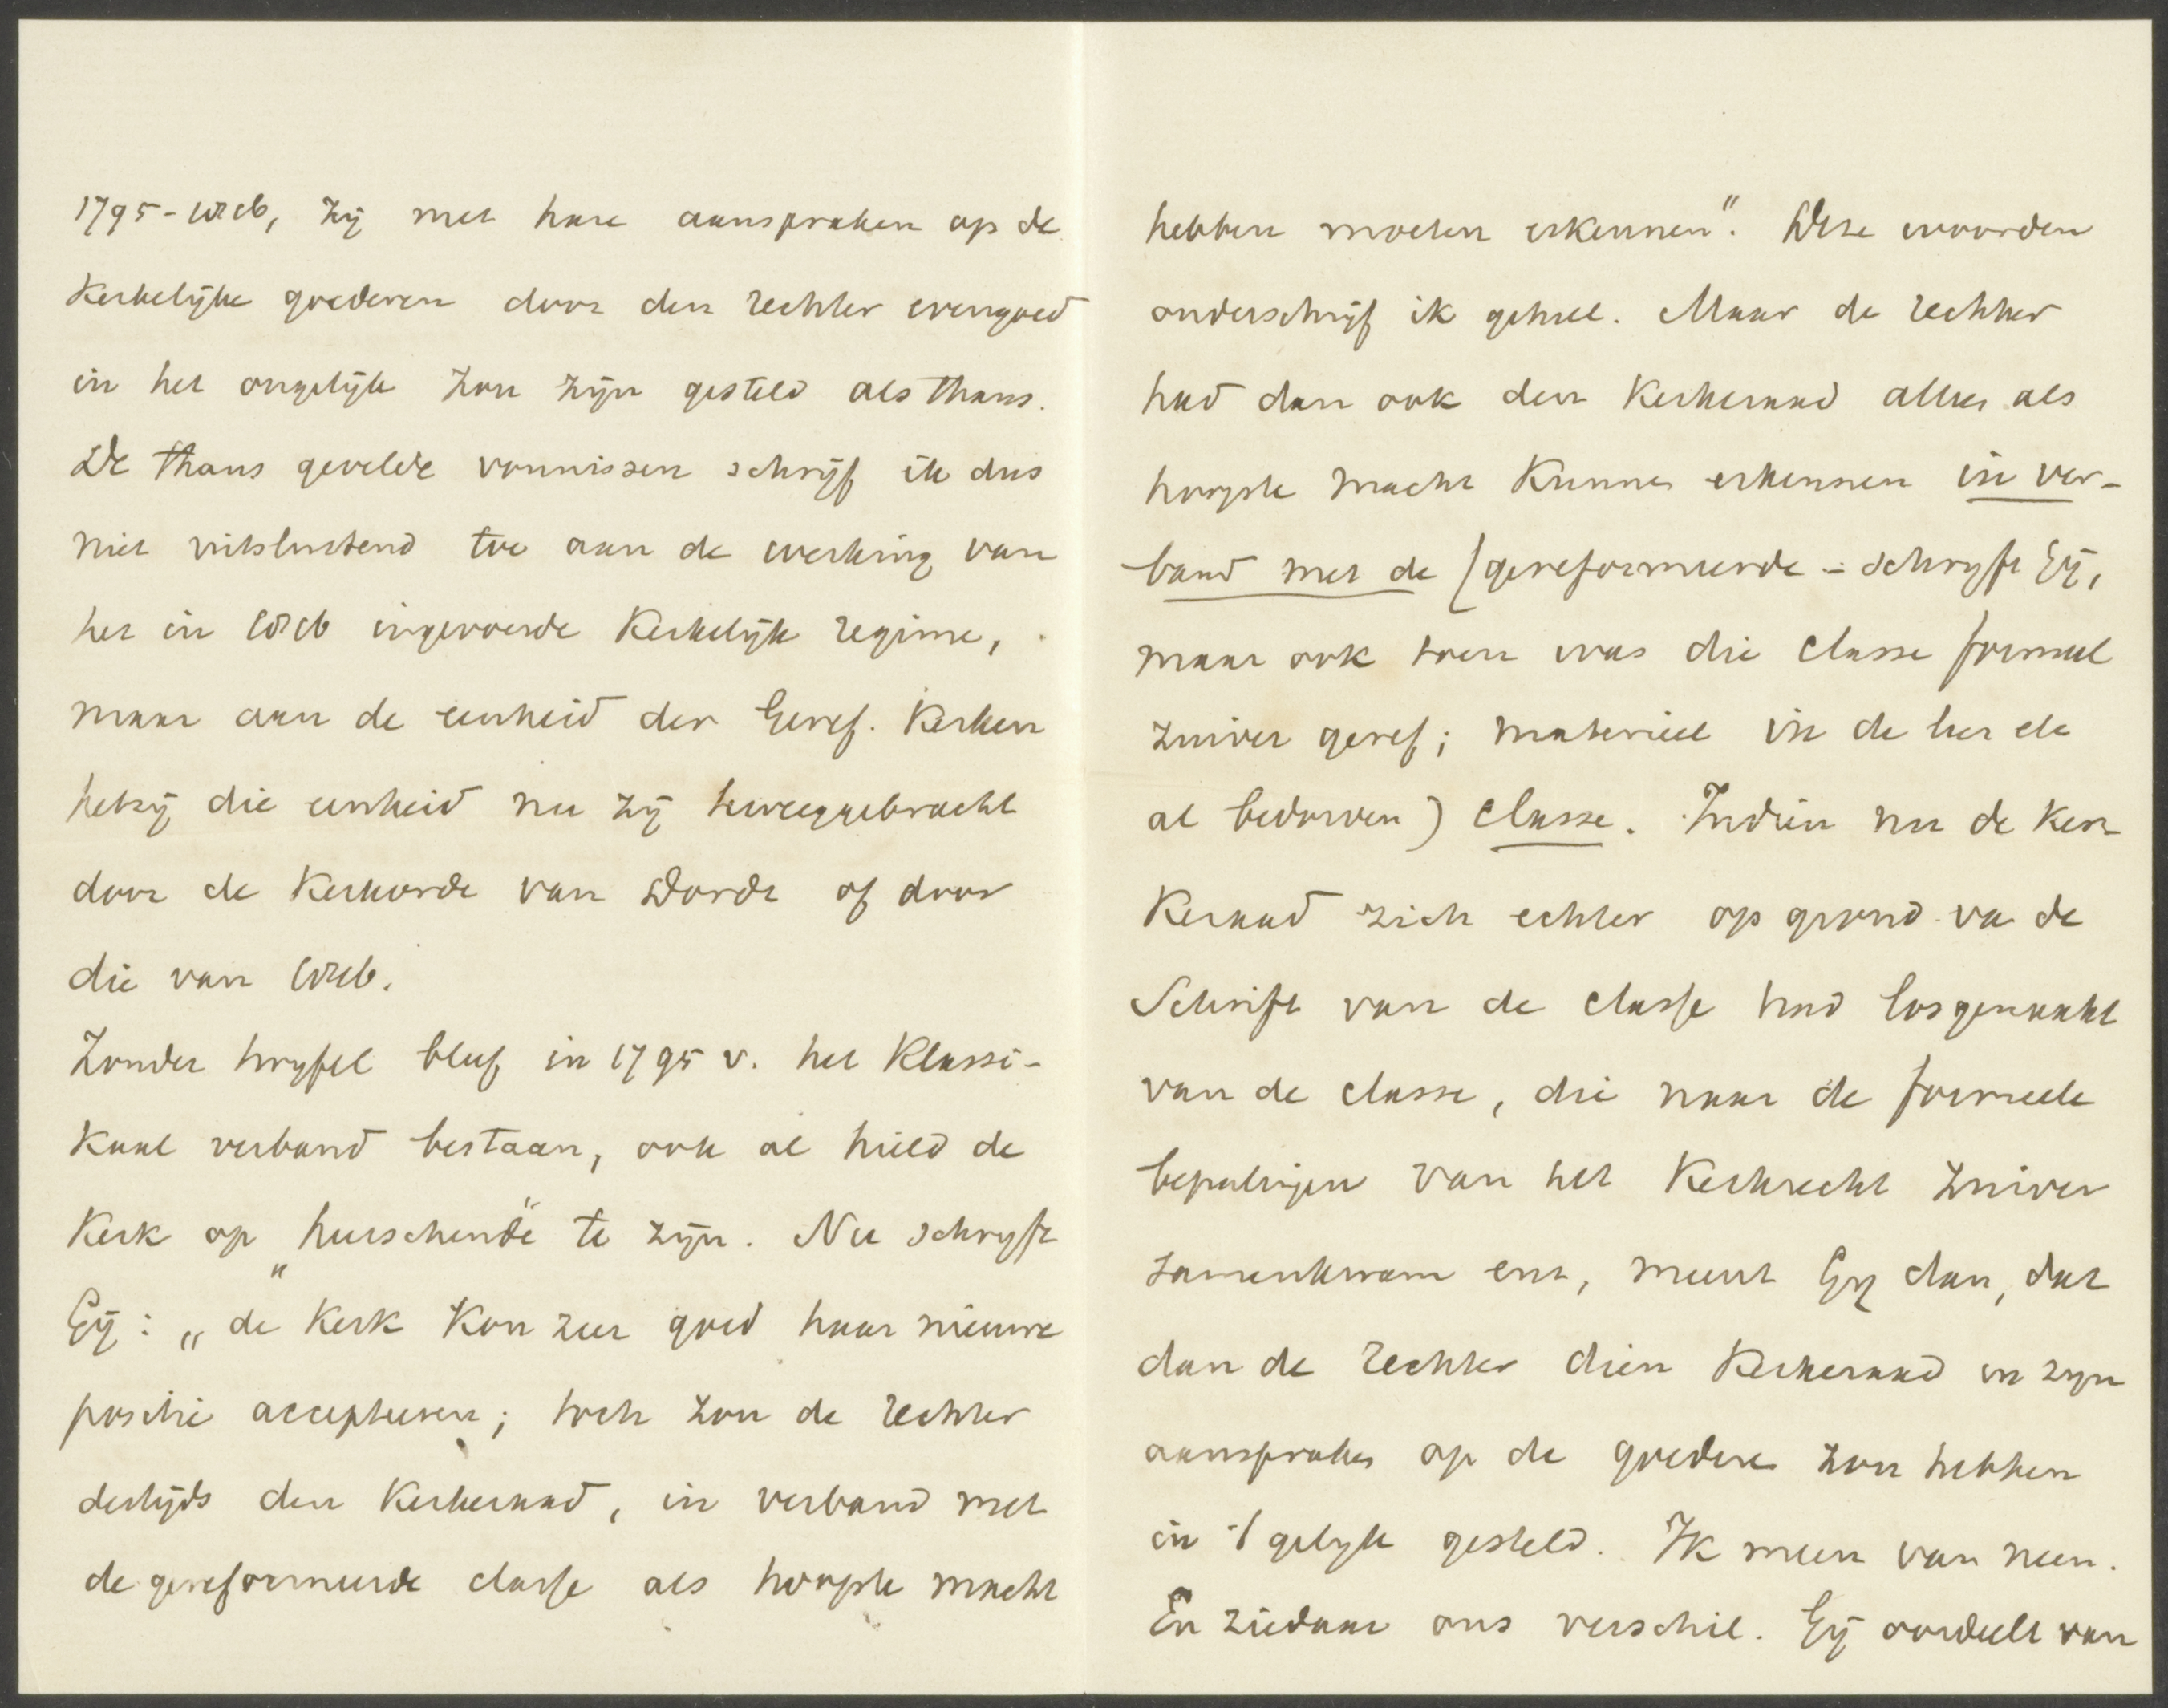 1795-1816, zij met hare aanspraken op de
Kerkelijke goederen door den rechter evengoed
in het ongelijk zou zijn gesteld als thans.
De thans gevelde vonnissen schrijf ik dus
niet uitsluitend toe aan de werking van
het in 1816 ingevoerde Kerkelijk regime,
maar aan de eenheid der Geref. Kerken
hetzij die eenheid nu zij teweeggebracht
door de Kerkorde van Dordt of door
die van 1816.
Zonder twijfel bleef in 1795 v. het Klassi-
kaal verband bestaan, ook al hield de
Kerk op „heerschende" te zijn. Nu schrijft
Gij: „de Kerk kon zeer goed haar nieuwe
positie accepteeren; toch zou de rechter
destijds den Kerkeraad, in verband met
de gereformeerde classe als hoogste macht
hebben moeten erkennen". Deze woorden
onderschrijf ik geheel. Maar de rechter
had dan ook den Kerkeraad alleen als
hoogste macht kunnen erkennen in ver-
band met de (gereformeerde - schrijft Gij,
maar ook toen was die classe formeel
zuiver geref; materieel in de leer ele
al bedorven) classe. Indien nu de Ker-
Keraad zich echter op grond va de
Schrift van de classe had losgemaakt
van de classe, die naar de formeele
bepalingen van het Kerkrecht zuiver
samenkwam enz, meent Gij dan, dat
dan de rechter dien Kerkeraad in zijn
aanspraken op de goederen zou hebben
in 't gelijk gesteld. Ik meen van neen.
En ziedaar ons verschil. Gij oordeelt van